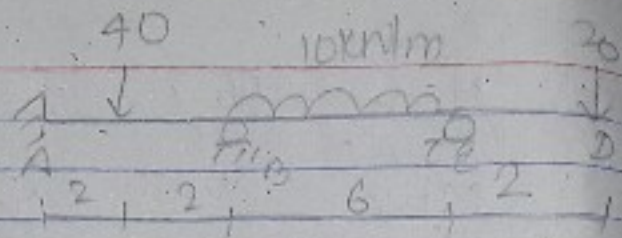 40 10kN/m 20
A B C D
2 2 6 2